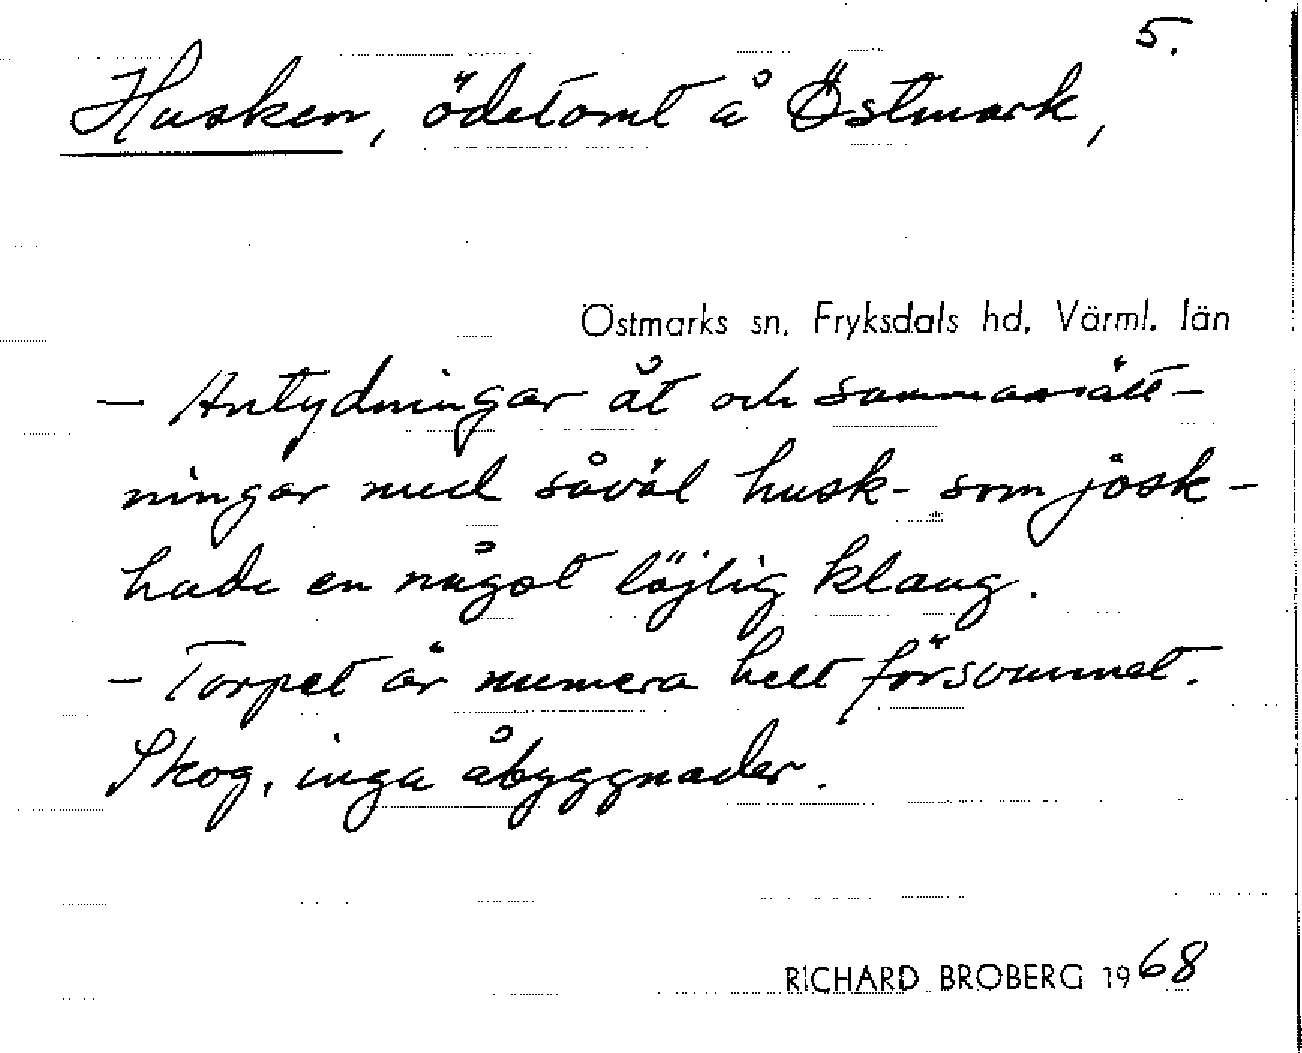 5.
Husken, ödetomt å Östmark,
Östmarks sn, Fryksdals hd, Värml. län
— Antydningar åt och sammansätt-
ningar med såväl husk- som jösk-
hade en något löjlig klang.
— Torpet är numera helt försvunnet.
Skog, inga åbyggnader.
RICHARD BROBERG 1968